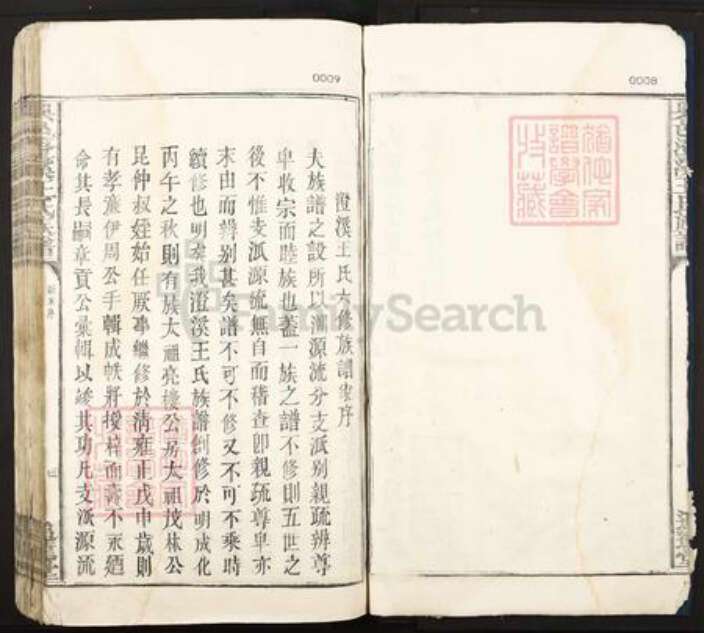 0009
0008
澄溪王氏六修族譜家序
夫族譜之設所以溯源流分支派別親疏辨尊
卑收宗而睦族也蓋一族之譜不修則五世之
後不惟支派源流無自而稽查即親疏尊卑亦
末由而辨别甚矣譜不可不修又不可不乘時
續修也明矣我澄溪王氏族譜創修於明成化
丙午之秋則有族太祖亮樓公房太祖茂林公
昆仲叔姪始任厥事繼修於清雍正戊申歲則
有孝廉伊周公手輯成帙將授梓而壽不永廼
命其長嗣章貢公彙輯以竣其功凡支派源流
FamilySearch